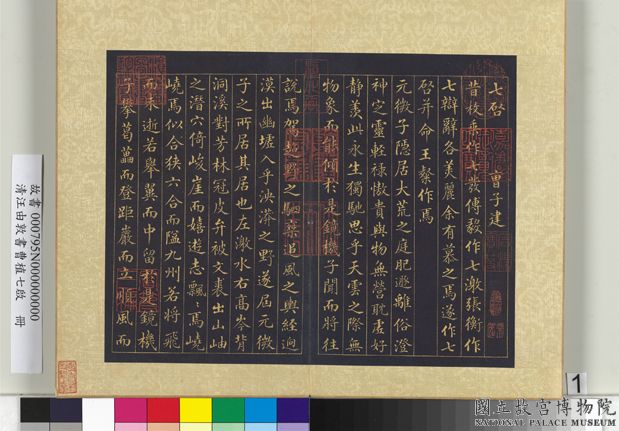 七啓 曹子建
昔枚乘作七發傅毅作七激張衡作
七辯辭各美麗余有慕之焉遂作七
啓并命王粲作焉
元微子隱居大荒之庭肥遯離俗澄
神定靈輕祿傲貴與物無營耽虛好
靜羨此永生獨馳思乎天雲之際無
物象而能傾於是鏡機子聞而將往
說焉駕超野之駟乘追風之輿經迥
漠出幽墟入乎泱漭之野遂屆元微
子之所居其居也左激水右高岑背
洞溪對芳林冠皮弁被文裘出山岫
之潛穴倚峻崖而嬉遊志飄焉嶢
嶢焉似若狹六合而隘九州若將飛
而未逝若舉翼而中留於是鏡機
子攀葛藟而登距巖而立順風而
故書000795N000000000
清汪由敦書曹植七啟 冊
1
國立故宮博物院
NATIONAL PALACE MUSEUM